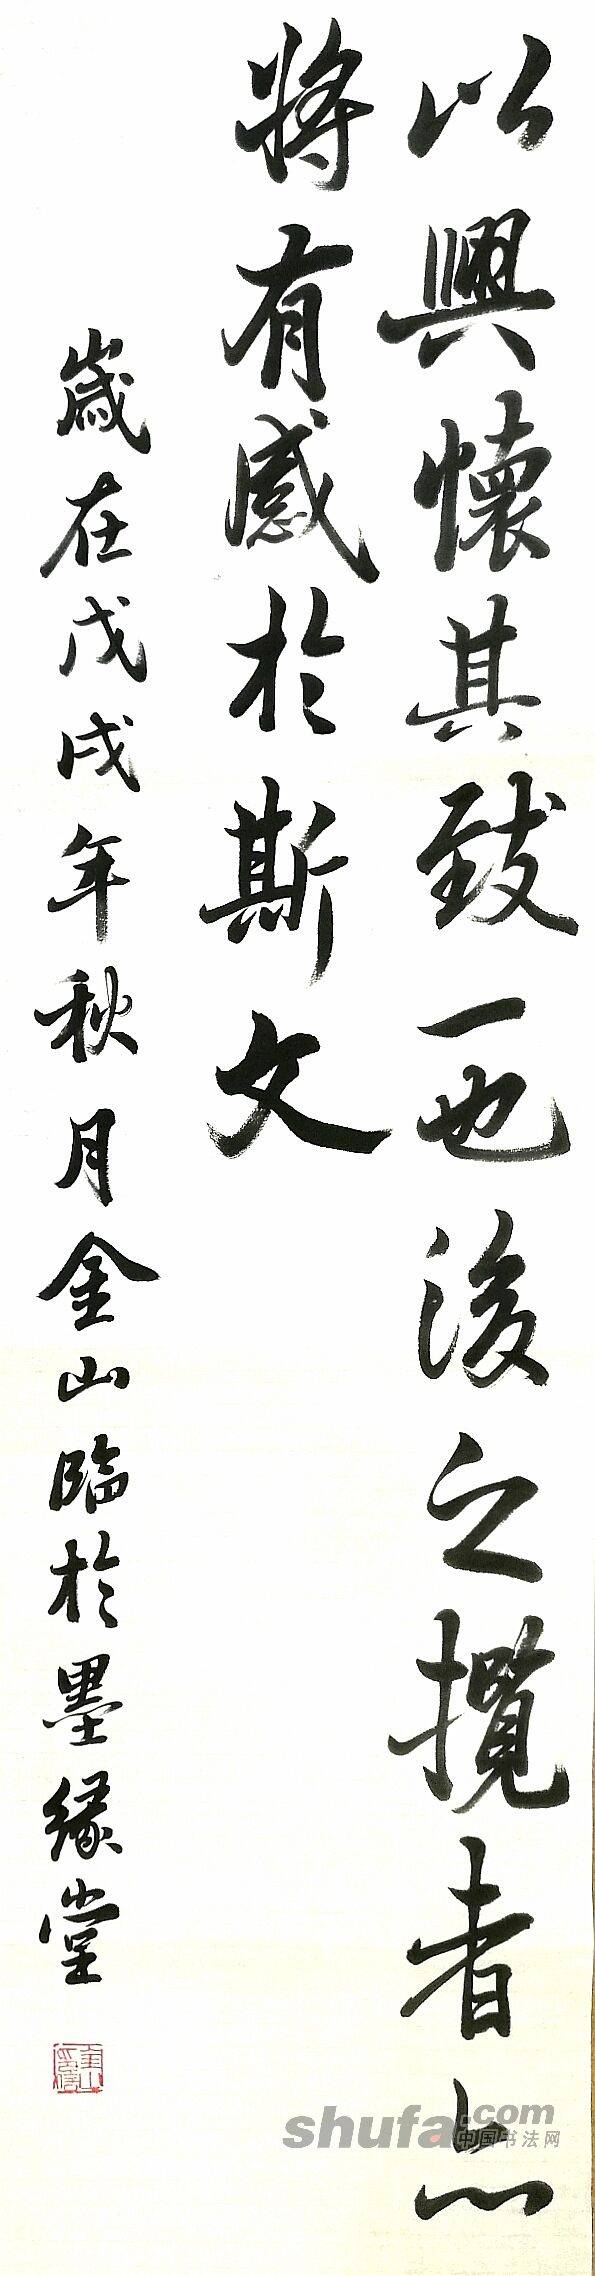 以興懷其致一也後之攬者亦
將有感於斯文
歲在戊戌年秋月金山臨於墨緣堂
shufa.com
中国书法网